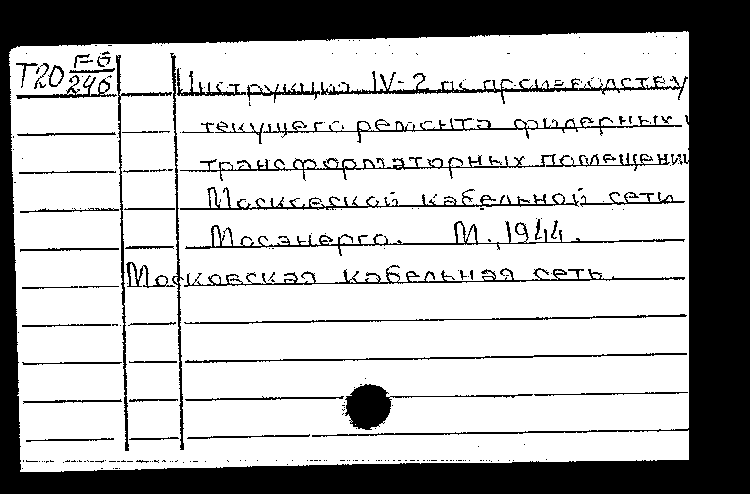 Т20 FB/246
Инструкция IV-2 по производству
текущего ремонта фидерных и
трансформаторных помещений
Московской кабельной сети
Мосэнерго. М., 1944.
Московская кабельная сеть.